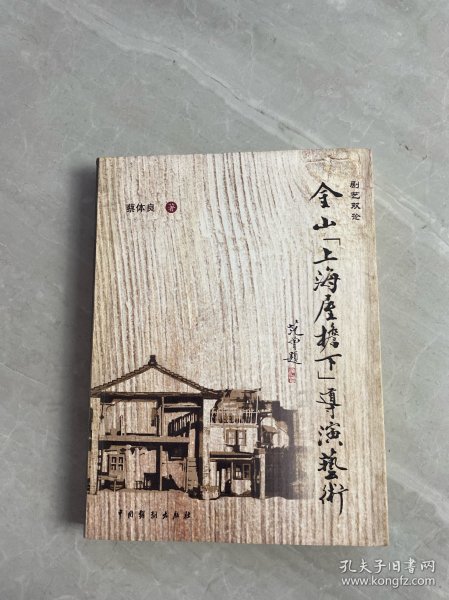 剧艺双论
金山「上海屋檐下」導演藝術
范曾題
蔡体良 著
中国戏剧出版社
孔夫子旧书网
www.kongfz.com